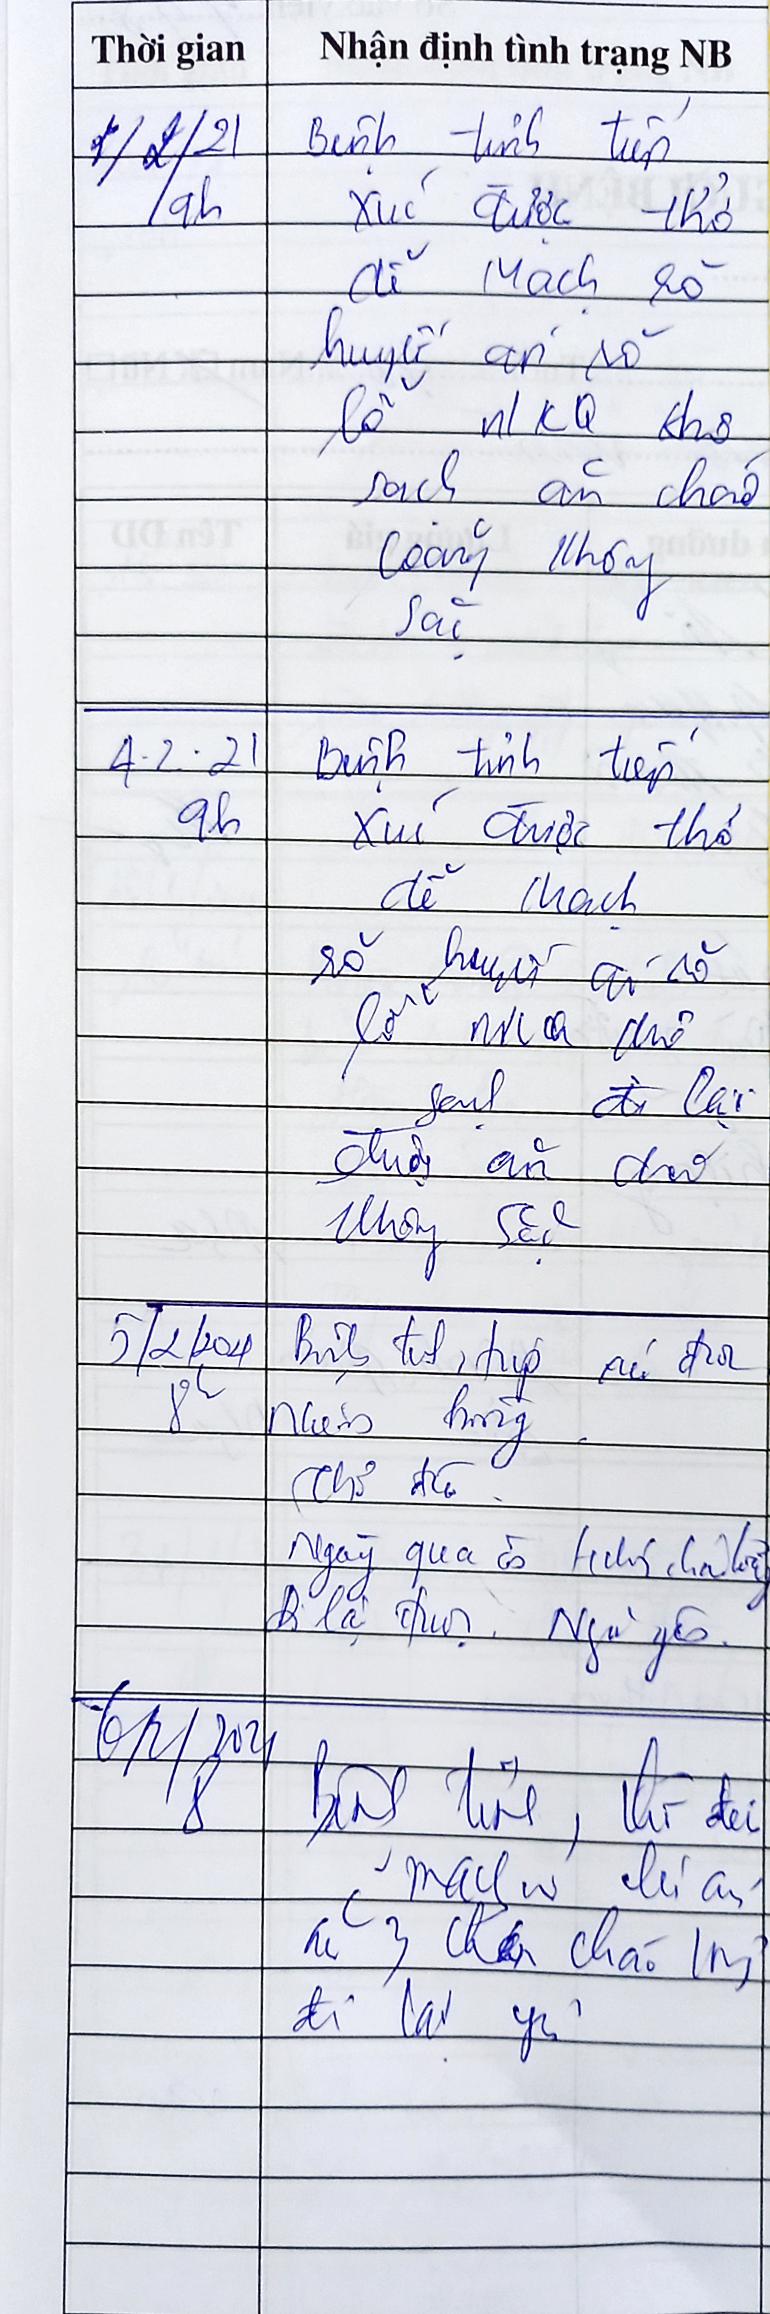 Thời gian
Nhận định tình trạng NB
1/2/21
9h
Bệnh tỉnh tiếp
xúc được thở
dễ Mạch rõ
huyết áp rõ
lỗ NKQ khô
sạch ăn cháo
loãng không
sặc
4.2.21
9h
Bệnh tỉnh tiếp
xúc được thở
dễ Mạch
rõ huyết áp rõ
lỗ NKQ khô
sạch đi lại
được ăn cháo
không sặc
5/2/2021
8h
Bệnh tỉnh, tiếp xúc được
hồng.
Thở đều.
Ngày qua ăn
đi lại được. Ngủ yên.
6/2/2021
8
Bệnh tỉnh, thở đều
mạch rõ
3 chén cháo
đi lại yếu